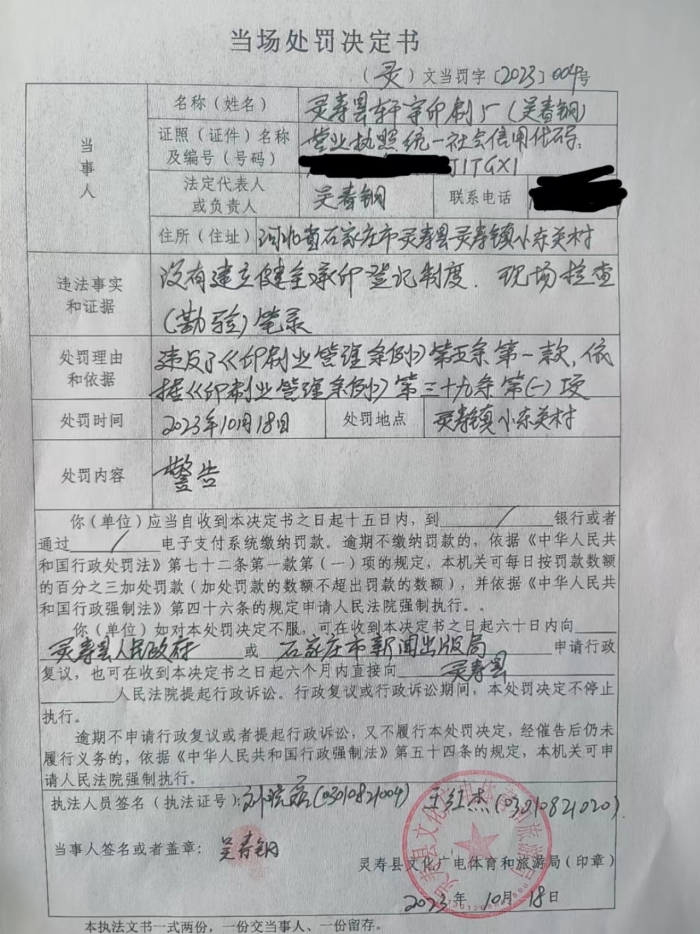 当场处罚决定书
（灵）文当罚字〔2023〕004号
当事人
名称（姓名）
灵寿县轩宇印刷厂(吴春钢)
证照（证件）名称及编号（号码）
营业执照统一社会信用代码:
J1TGX1
法定代表人或负责人
吴春钢
联系电话
住所（住址）
河北省石家庄市灵寿县灵寿镇小东关村
违法事实和证据
没有建立健全承印登记制度．现场检查
(勘验)笔录
处罚理由和依据
违反了《印刷业管理条例》第五条第一款,依
据《印刷业管理条例》第三十九条第(一)项
处罚时间
2023年10月18日
处罚地点
灵寿镇小东关村
处罚内容
警告
你（单位）应当自收到本决定书之日起十五日内，到 / 银行或者
通过 / 电子支付系统缴纳罚款。逾期不缴纳罚款的，依据《中华人民共
和国行政处罚法》第七十二条第一款第（一）项的规定，本机关可每日按罚款数额
的百分之三加处罚款（加处罚款的数额不超出罚款的数额），并依据《中华人民共
和国行政强制法》第四十六条的规定申请人民法院强制执行。。
你（单位）如对本处罚决定不服，可在收到本决定书之日起六十日内向
灵寿县人民政府 或 石家庄市新闻出版局 申请行政
复议，也可在收到本决定书之日起六个月内直接向 灵寿县
人民法院提起行政诉讼。行政复议或行政诉讼期间，本处罚决定不停止
执行。
逾期不申请行政复议或者提起行政诉讼，又不履行本处罚决定，经催告后仍未
履行义务的，依据《中华人民共和国行政强制法》第五十四条的规定，本机关可申
请人民法院强制执行。
执法人员签名（执法证号）: (03010821004) 王红杰(03010821020).
当事人签名或者盖章：吴春钢
灵寿县文化广电体育和旅游局（印章）
2023年10月18日
本执法文书一式两份，一份交当事人、一份留存。